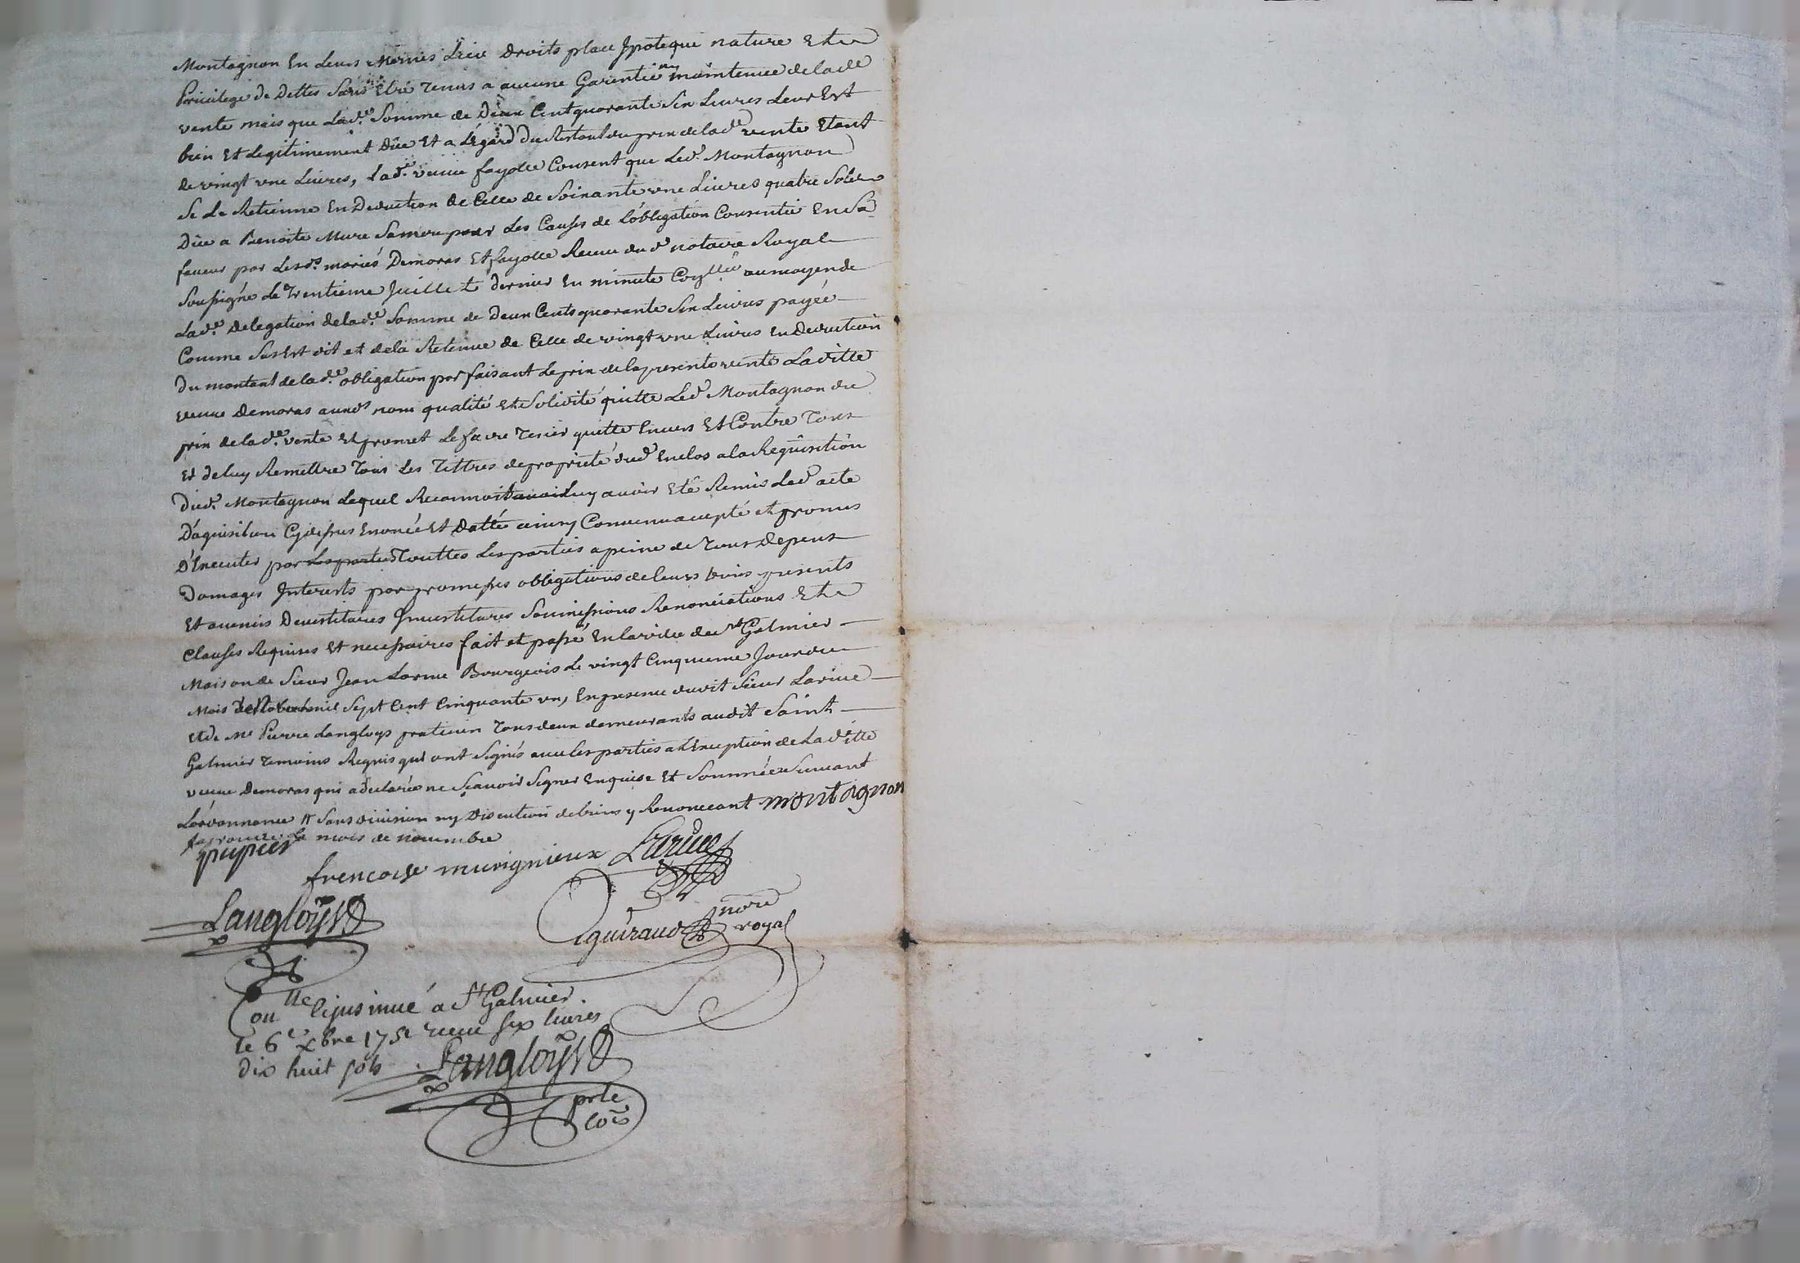 Montagnon En Leurs Memes Lieu Droits place Ipoteque nature Et
Privilege de Dettes Sans Etre Tenus a aucune Garentie ny maintenue de lade
vente mais que Lad.e Somme de Deux Cent quarante Six Livres Leur Est
bien Et Legitimement Düe Et a L'égard Du Restant du prix de lad.e vente Etant
de vingt une Livres, Lad.e veuve fayolle Consent que Led.t Montagnon
Se Le Retienne En Deduction de Celle de Soixante une Livres quatre Sols
Düe a Benoite Mure Sa mere pour Les Causes de L'obligation Consentie En Sa
faveur par Lesd.s mariés Demoras Et fayolle Receue du d.t notaire Royal
Soussigné Le Trentieme Juillet dernier En minute au moyen de
Lad.e Delegation de lad.e Somme de Deux Cents quarante Six Livres payée
Comme Sus Est dit et de la Retenue de Celle de vingt une Livres En Deduction
Du montant de lad.e obligation parfaisant Le prix de la presente vente Laditte
veuve Demoras aund.t nom qualité Et Solidité quitte Led.t Montagnon du
prix de lad.e vente Et promet Le faire Tenir quitte Envers Et Contre Tous
Et de luy Remettre Tous Les Tittres de propriété dud.t Enclos a la Requisition
Dud.t Montagnon Lequel Reconnoit Luy avoir Eté Remis Led.t acte
D'aquisition Cydessus Enoncé Et Datté ainsy Convenu accepté et promis
D'Executer par Touttes Les parties a peine de Tous Depens
Domages Interests par promesses obligations de leurs biens presents
Et avenirs Devestitures Investitures Soumissions Renonciations Et
Clauses Requises Et necessaires fait et passé En la ville de St Galmier
Maison de Sieur Jean Larue Bourgeois Le vingt Cinquieme Jour du
Mois mil Sept Cent Cinquante un, En presence dudit Sieur Larue
Et de Me Pierre Langloys praticien Tous deux demeurants audit Saint
Galmier Temoins Requis qui ont Signés avec Les parties a L'Exception de Laditte
veuve Demoras qui a declarée ne Sçavoir Signer Enquise Et Sommée Suivant
L'ordonnance # Sans division ny Discution de biens y Renonceant montagnon
mois de novembre
pupier
francoise murignieux Larüe
Langloÿs
guiraud nore
royal
Con.lle et insinué a St Galmier
le 6e xbre 1751 receu six livres
dix huit sols Langloÿs
pr le
Cois